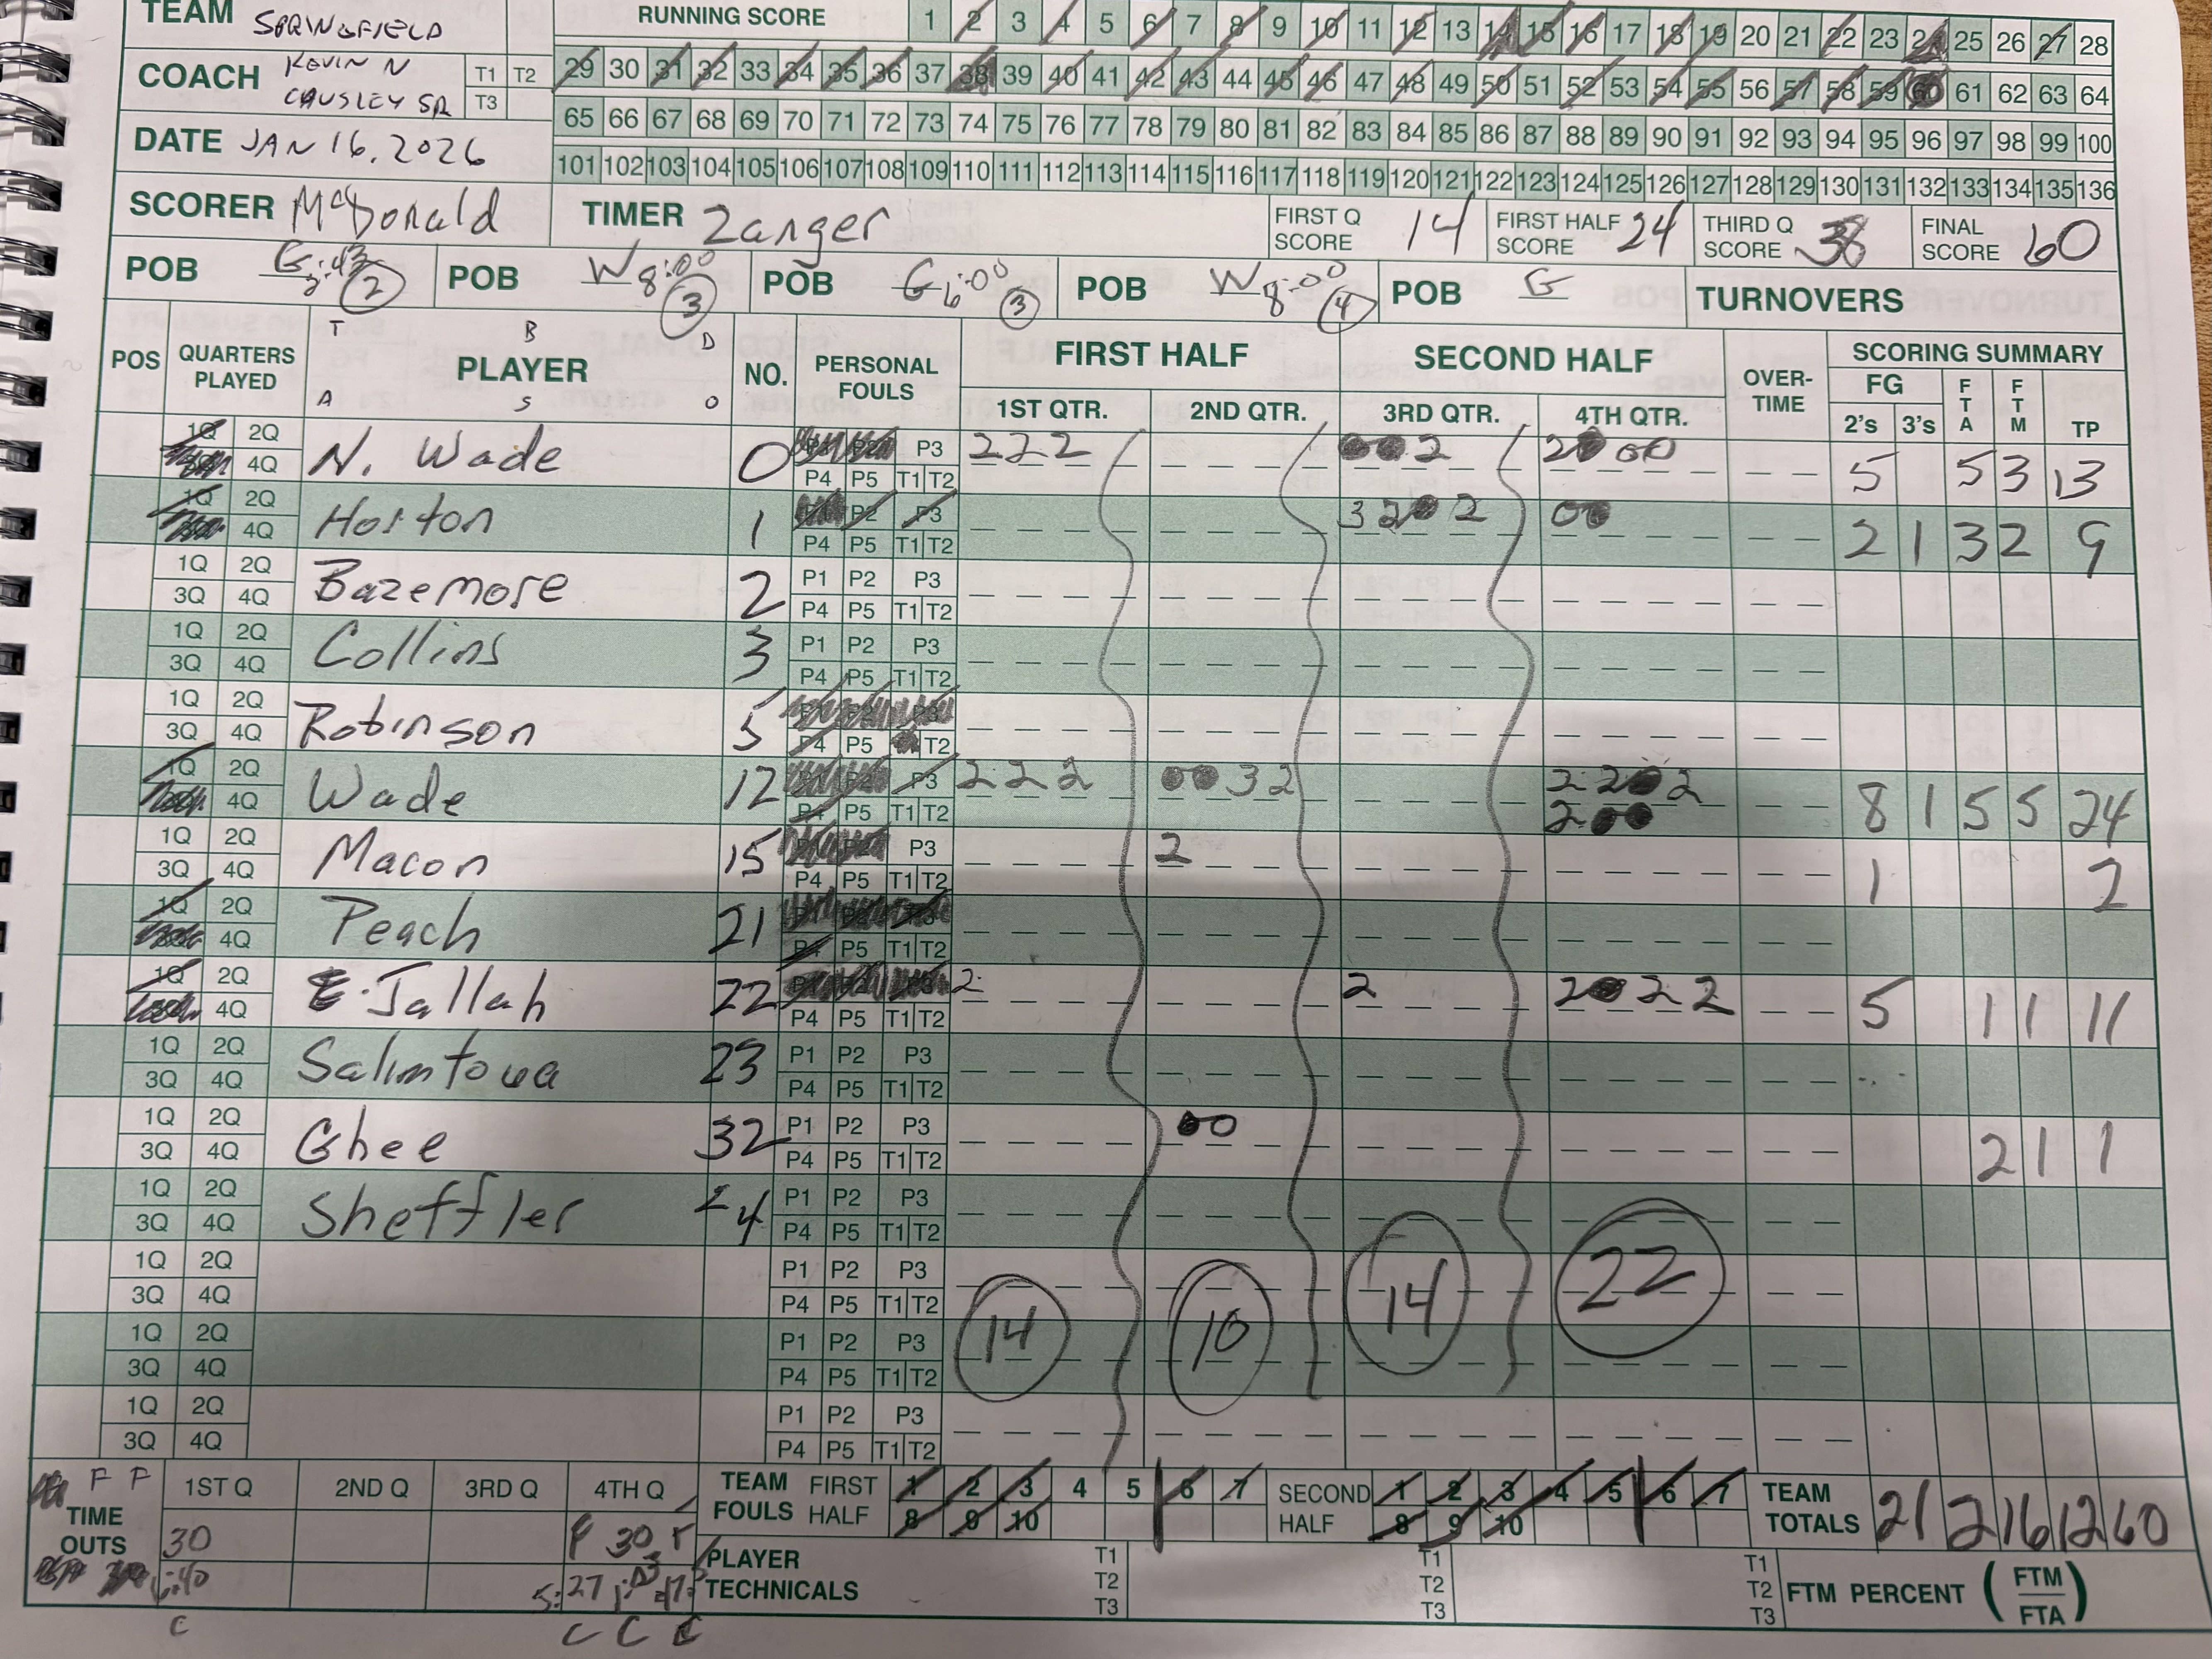 TEAM SPRINGFIELD
RUNNING SCORE 1 2 3 4 5 6 7 8 9 10 11 12 13 14 15 16 17 18 19 20 21 22 23 24 25 26 27 28
COACH KEVIN N CAUSLEY SR T1 T2 T3
29 30 31 32 33 34 35 36 37 38 39 40 41 42 43 44 45 46 47 48 49 50 51 52 53 54 55 56 57 58 59 60 61 62 63 64
65 66 67 68 69 70 71 72 73 74 75 76 77 78 79 80 81 82 83 84 85 86 87 88 89 90 91 92 93 94 95 96 97 98 99 100
DATE JAN 16, 2026
101 102 103 104 105 106 107 108 109 110 111 112 113 114 115 116 117 118 119 120 121 122 123 124 125 126 127 128 129 130 131 132 133 134 135 136
SCORER McDonald TIMER Zanger FIRST Q SCORE 14 FIRST HALF SCORE 24 THIRD Q SCORE 38 FINAL SCORE 60
POB G 2:43 2 POB W 8:00 3 POB G 6:00 3 POB W 8:00 4 POB G TURNOVERS
T B D
POS QUARTERS PLAYED PLAYER NO. PERSONAL FOULS FIRST HALF SECOND HALF OVER-TIME SCORING SUMMARY
A S O
1ST QTR. 2ND QTR. 3RD QTR. 4TH QTR. FG 2's 3's FTA FTM TP
1Q 2Q N. Wade 0 P3 2 2 2 0 0 2 2 0 0 0 5 5 3 13
4Q P4 P5 T1 T2
1Q 2Q Horton 1 P2 P3 3 2 0 2 0 0 2 1 3 2 9
4Q P4 P5 T1 T2
1Q 2Q Bazemore 2 P1 P2 P3
3Q 4Q P4 P5 T1 T2
1Q 2Q Collins 3 P1 P2 P3
3Q 4Q P4 P5 T1 T2
1Q 2Q Robinson 5 P3
3Q 4Q P4 P5 T2
1Q 2Q Wade 12 P3 2 2 2 0 0 3 2 2 2 0 2 8 1 5 5 24
4Q P4 P5 T1 T2 2 0 0
1Q 2Q Macon 15 P3 2 1 2
3Q 4Q P4 P5 T1 T2
1Q 2Q Peach 21
4Q P4 P5 T1 T2
1Q 2Q E. Jallah 22 2 2 2 0 2 2 5 1 1 11
4Q P4 P5 T1 T2
1Q 2Q Salimtoua 23 P1 P2 P3
3Q 4Q P4 P5 T1 T2
1Q 2Q Ghee 32 P1 P2 P3 0 0 2 1 1
3Q 4Q P4 P5 T1 T2
1Q 2Q Sheffler 24 P1 P2 P3
3Q 4Q P4 P5 T1 T2
1Q 2Q P1 P2 P3
3Q 4Q P4 P5 T1 T2
1Q 2Q P1 P2 P3 14 10 14 22
3Q 4Q P4 P5 T1 T2
1Q 2Q P1 P2 P3
3Q 4Q P4 P5 T1 T2
F F 1ST Q 2ND Q 3RD Q 4TH Q TEAM FOULS FIRST HALF 1 2 3 4 5 6 7 SECOND HALF 1 2 3 4 5 6 7 TEAM TOTALS 21 2 16 12 60
TIME OUTS 30 F 30 F 8 9 10 8 9 10
:40 5:27 PLAYER TECHNICALS T1 T2 T3 T1 T2 T3 T1 T2 T3 FTM PERCENT (FTM/FTA)
C C C C